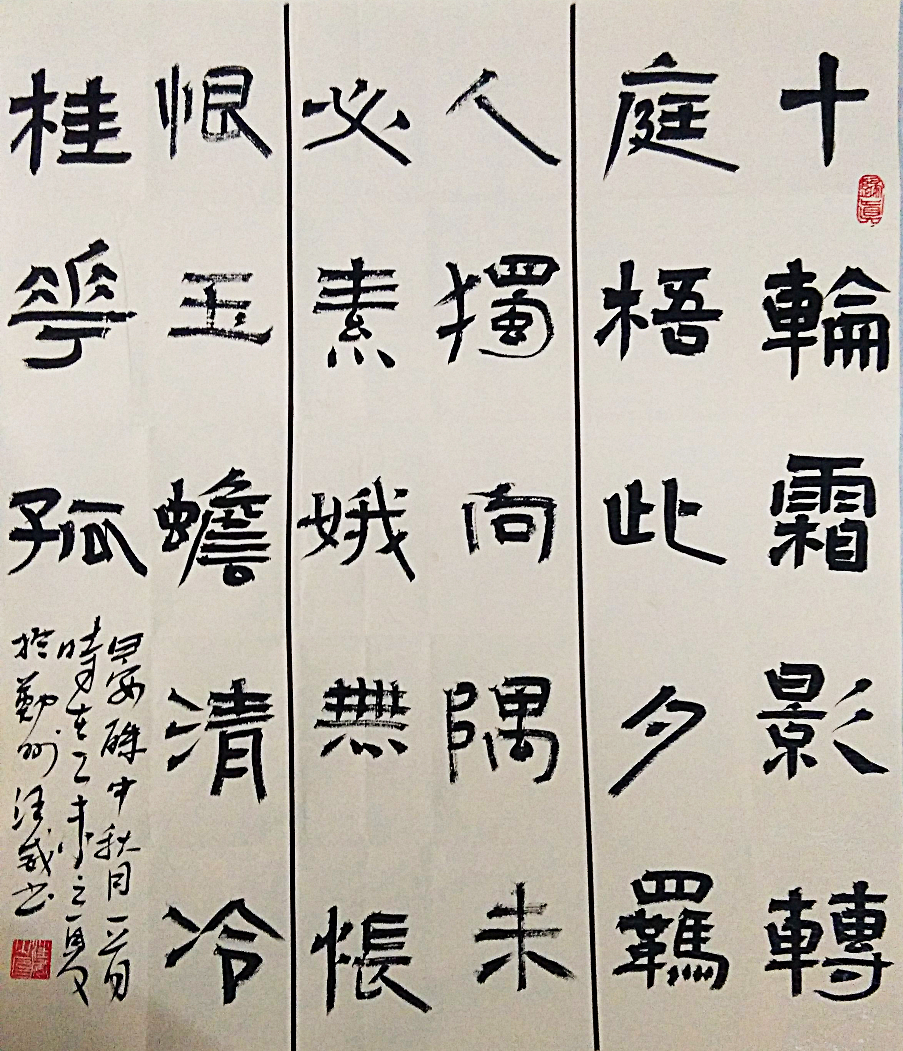 十輪霜影轉
庭梧此夕羈
人獨向隅未
必素娥無悵
恨玉蟾清冷
桂花孤
晏殊中秋月一首
時在乙未之夏
於鄞州汪威書